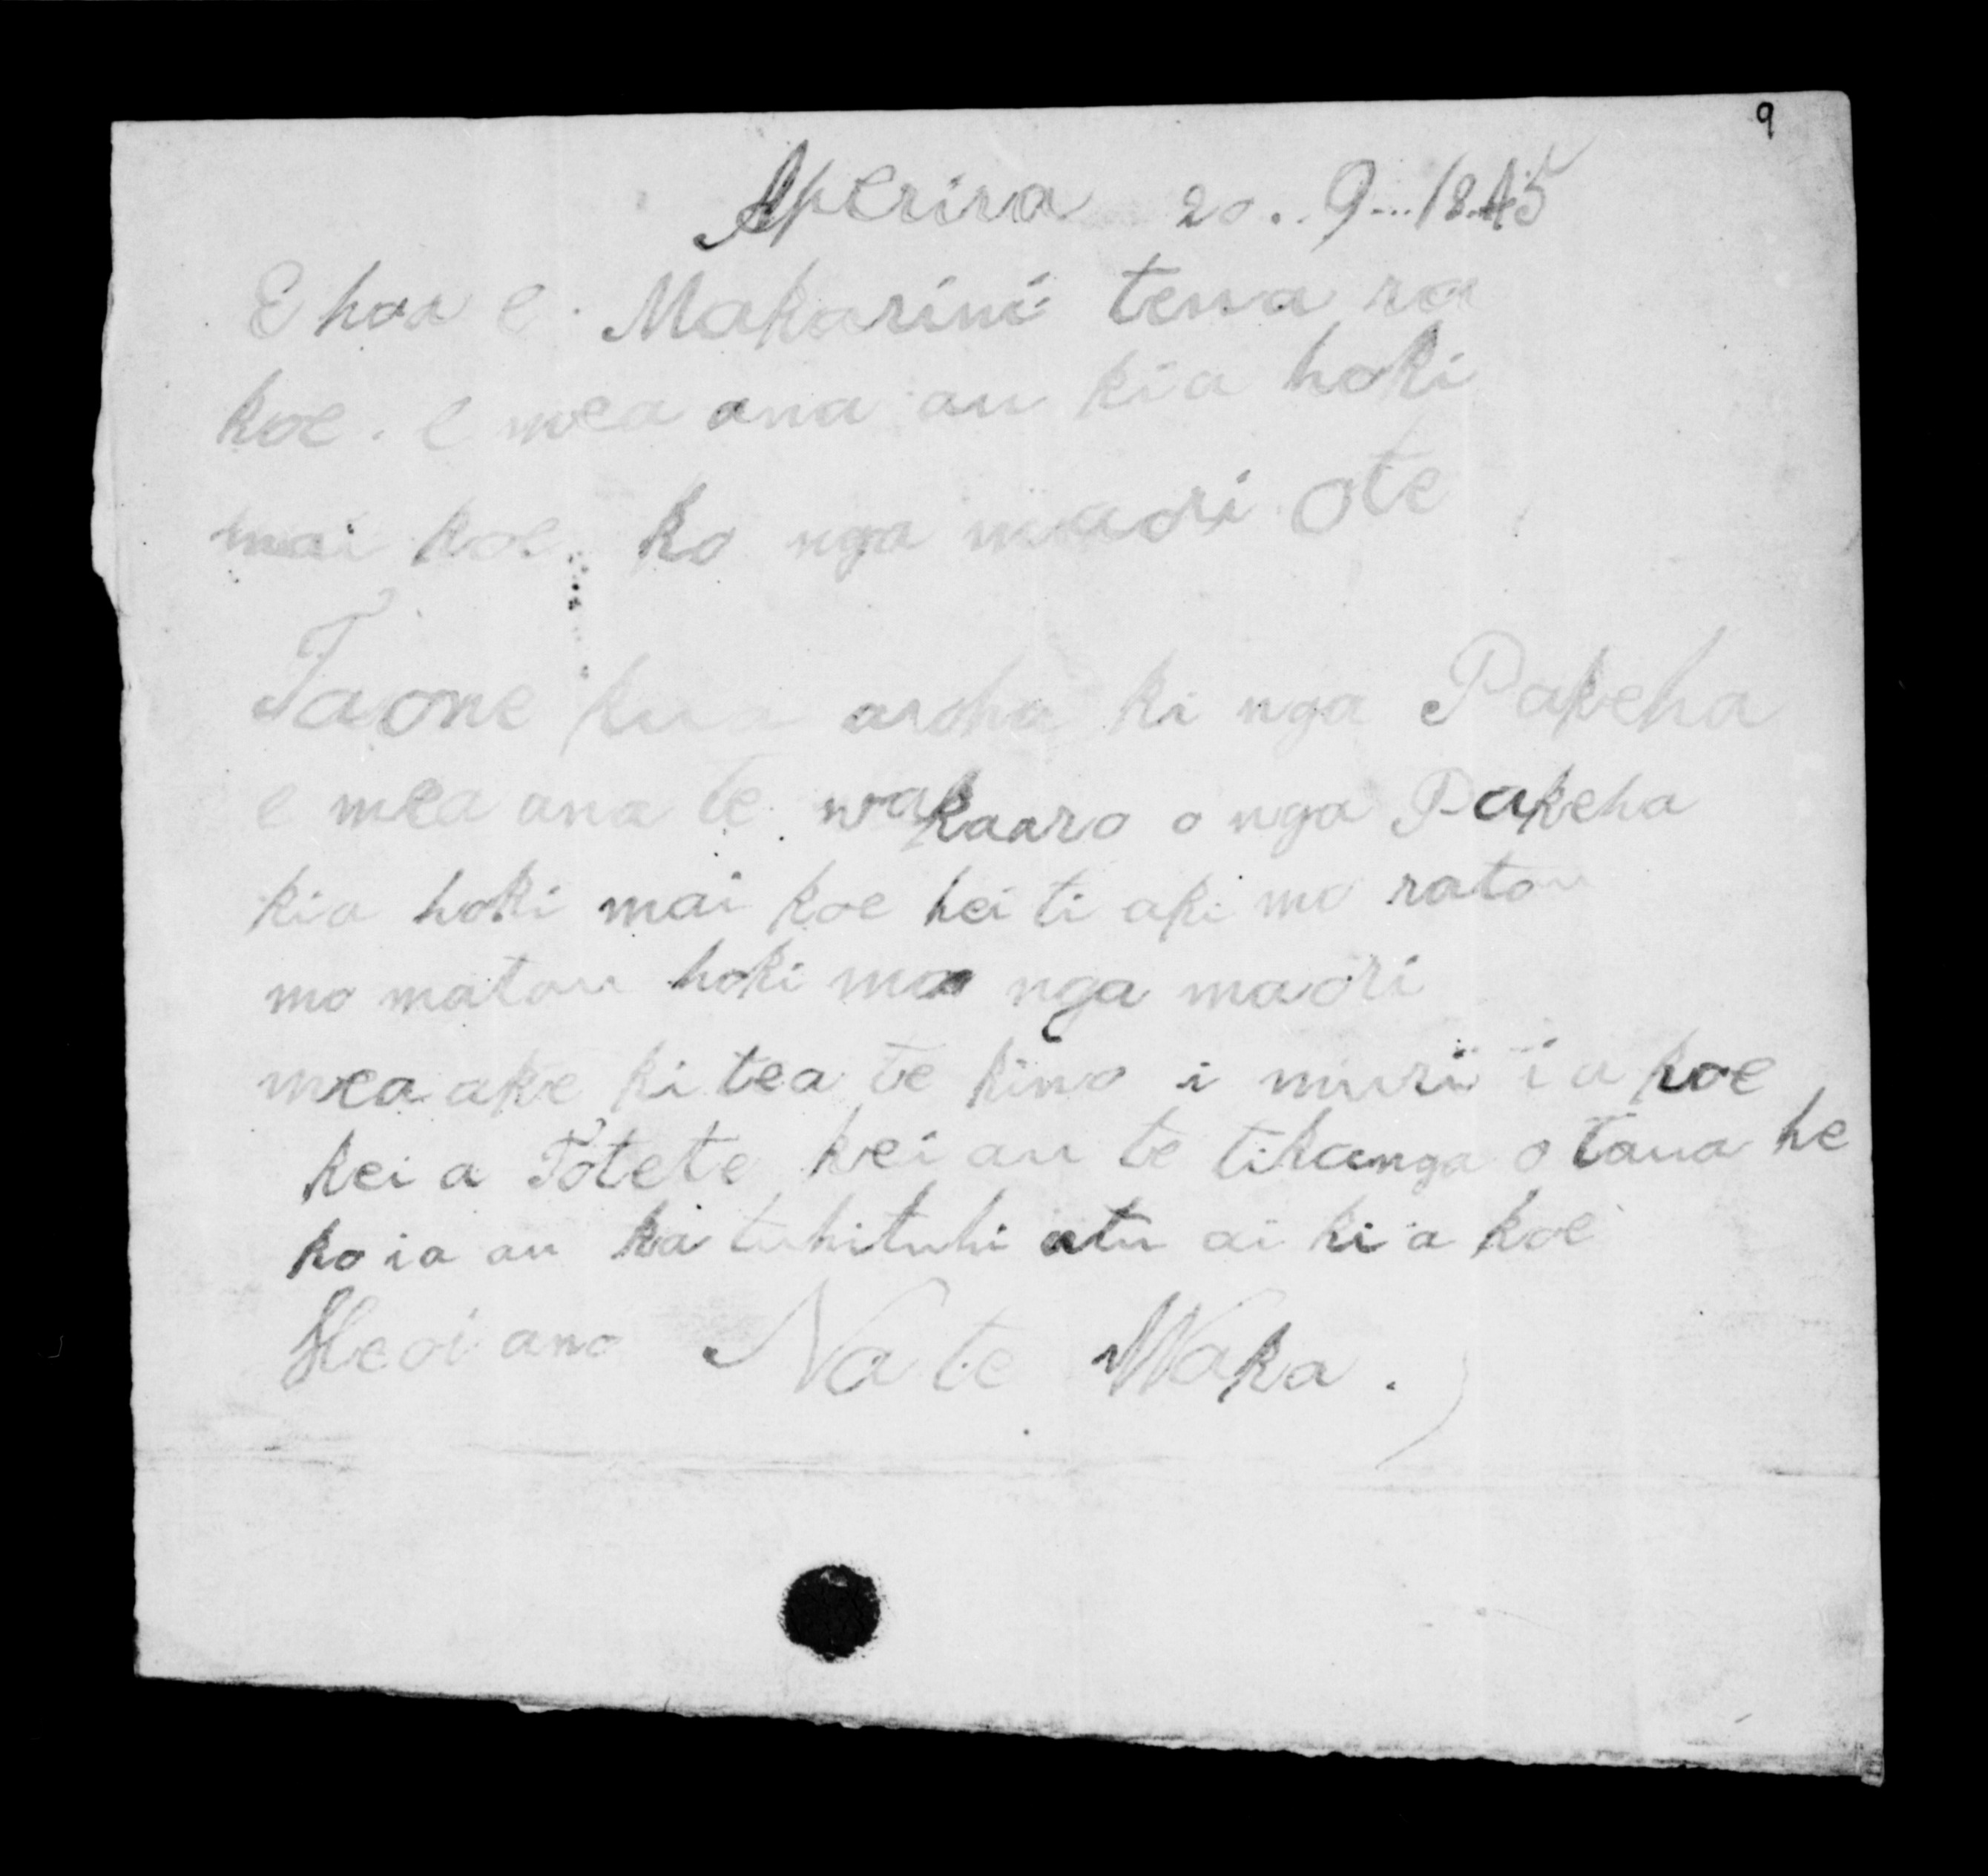 9
Aperira 20 .. 9 ... 1845
E hoa e. Makarini tena ra
koe. e mea ana au kia hoki
mai koe. ko nga maori ote
Taone kua aroha ki nga Pakeha
e mea ana te wakaaro o nga Pakeha
kia hoki mai koe hei ti aki mo ratou
mo matou hoki mo nga maori
mea ake ki tea te kino i muri i a koe
kei a Totete kei au te tikanga o taua he
ko ia au ka tuhituhi atu ai ki a koe
Heoi ano Na te Waka.